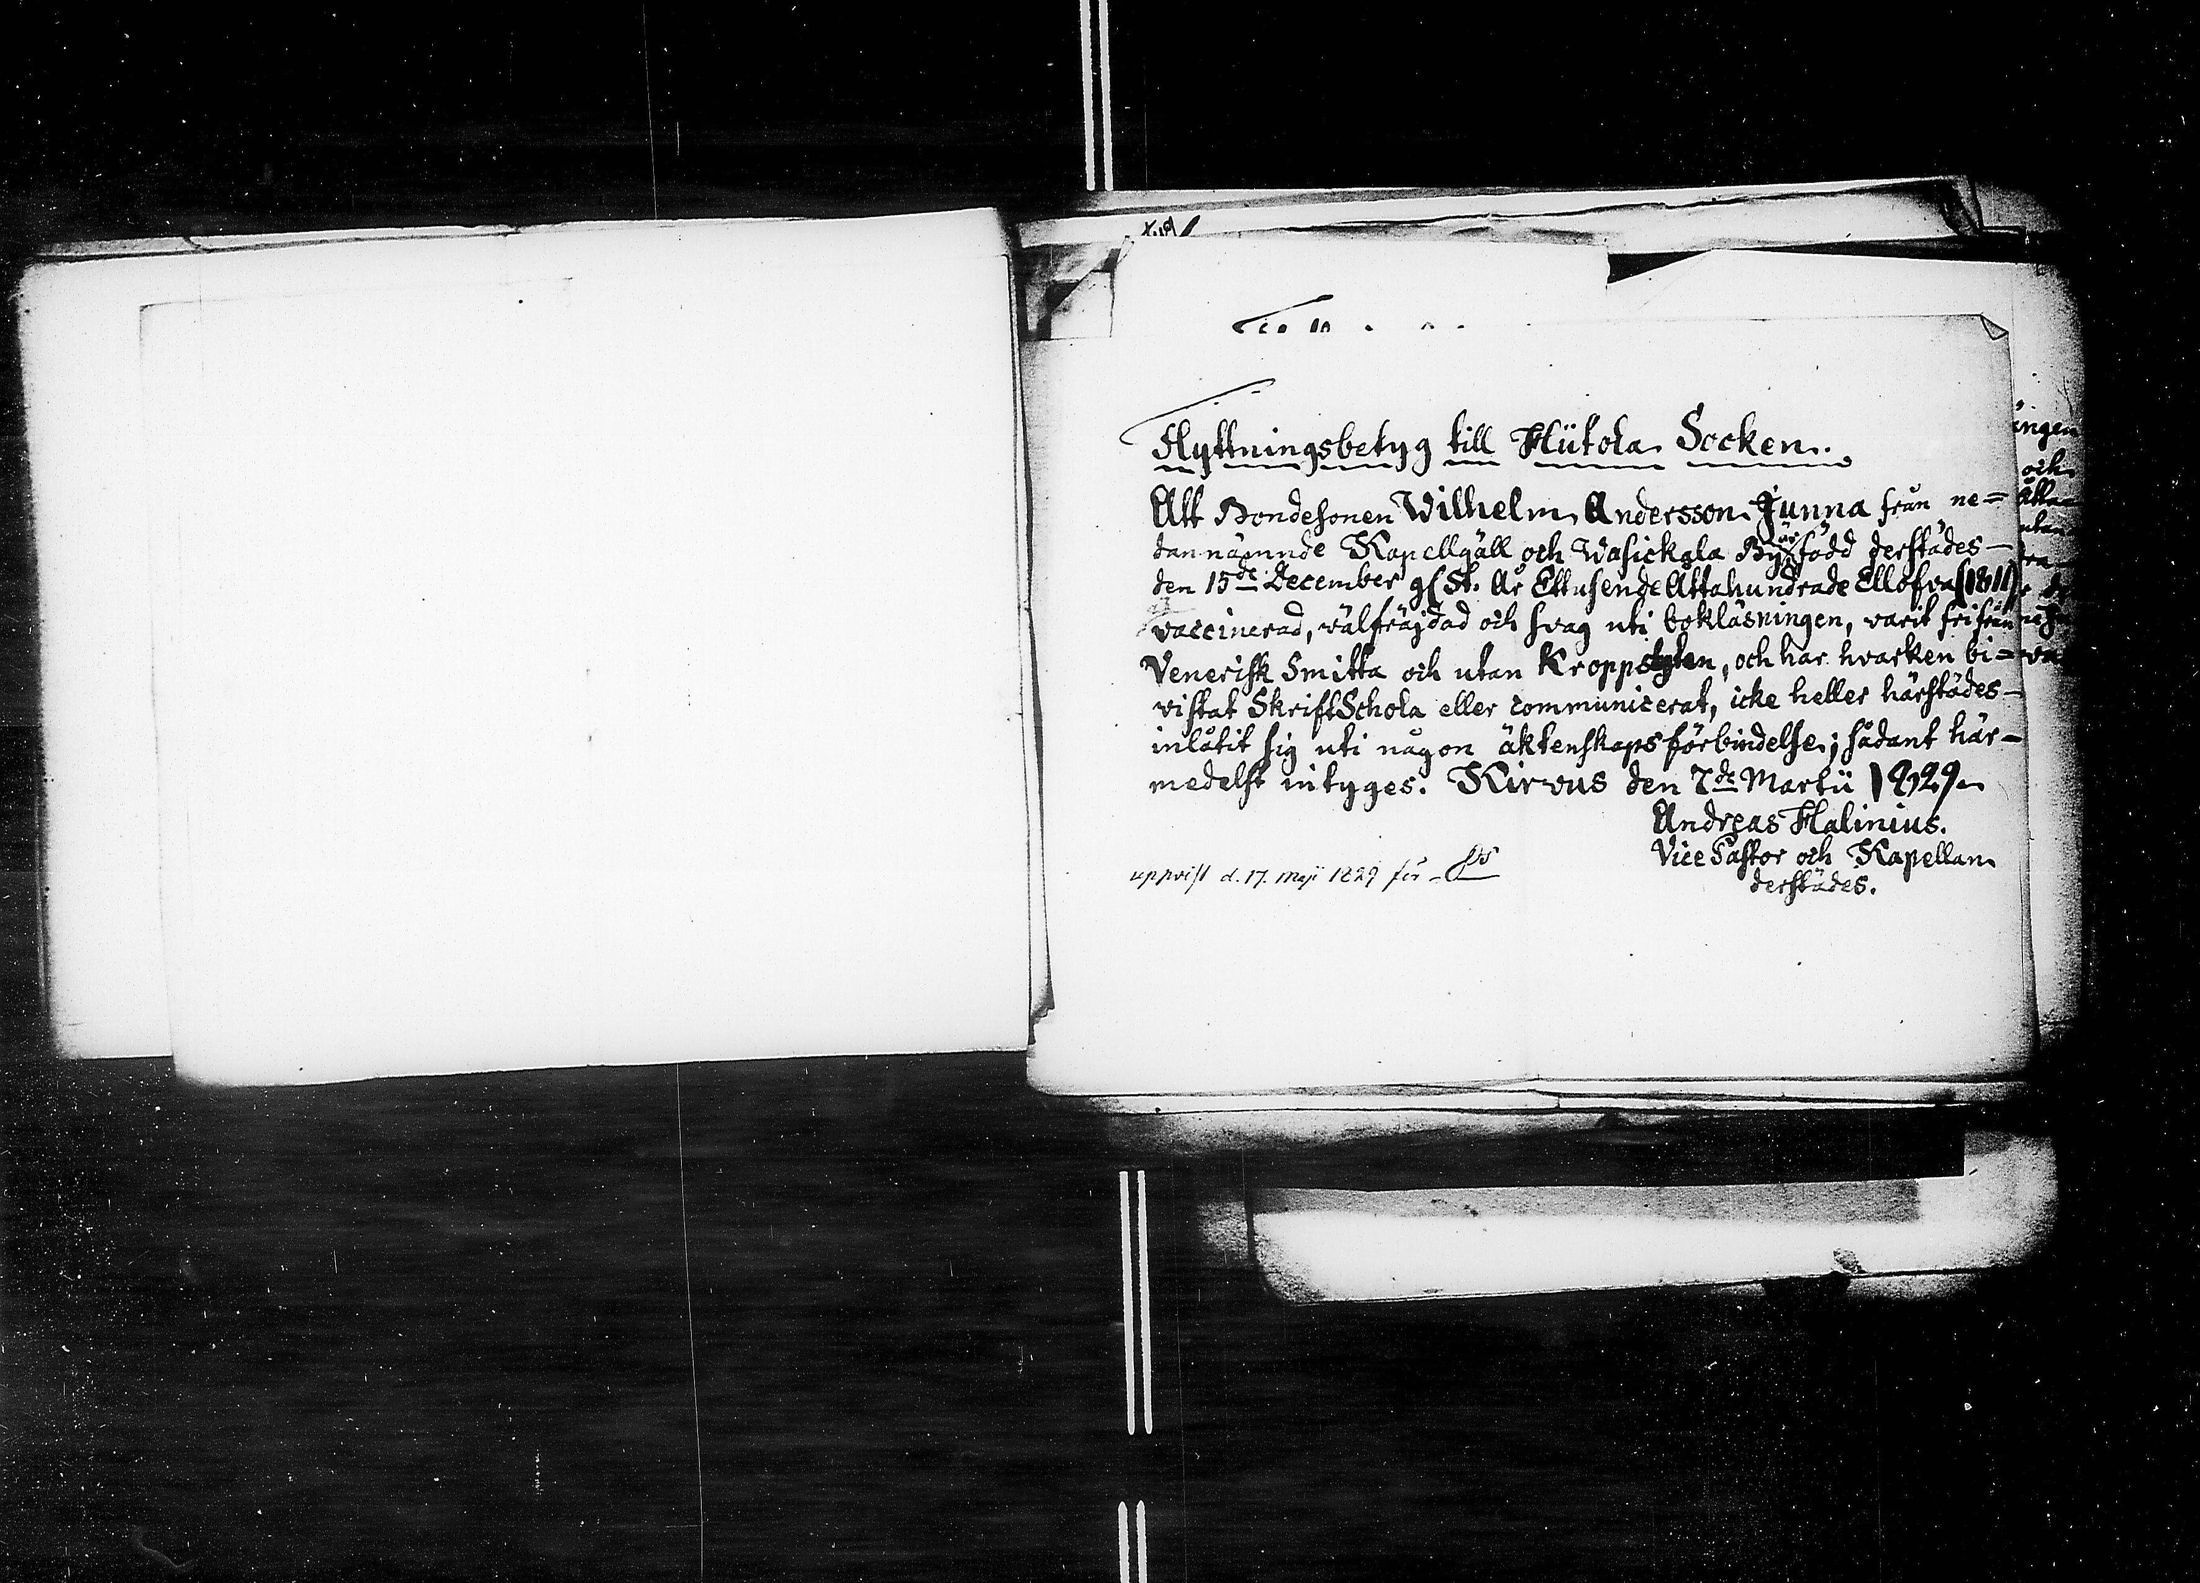 Flyttningsbetyg till Hiitola Socken.
Att Bondesonen Wilhelm Andersson Junna från ne=
dannämnde Kapellgäll och Wasickala By är född derstädes
den 15de December gl St. År Ettusende Åttahundrade Ellofva (1811)
vaccinerad, välfräjdad och svag uti bokläsningen, varit fri från
Venerisk Smitta och utan Kroppslyten, och har hvarken bi=
vistat SkriftSchola eller communicerat, icke heller härstädes
inlåtit sig uti någon äktenskaps förbindelse; sådant här-
medelst intyges. Kirvus den 7de Martii 1829
Andreas Halinius.
Vice Pastor och Kapellan
derstädes.
uppvist d. 17. Maji 1829 för
ingen
och
Åtta=
utan